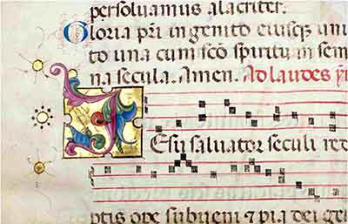 persoluamus alacriter.
Gloria pr̄i ingenito eiusq̄ uni
to una cum sc̄o spiritu in sem
na secula. Amen. Ad laudes ȳ
Iesu saluator seculi red
ptis ope subueni ⁊ pia dei ge